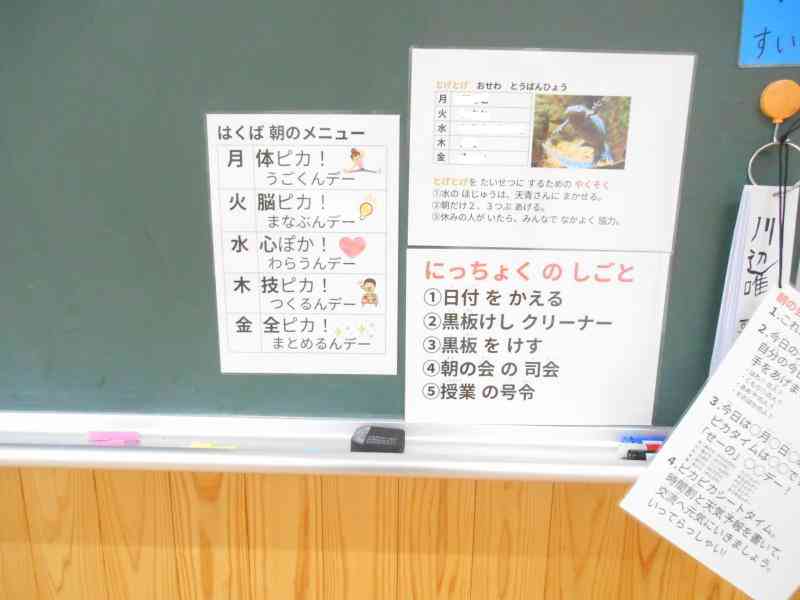 はくば 朝のメニュー
月 体ピカ！
うごくんデー
火 脳ピカ！
まなぶんデー
水 心ぽか！
わらうんデー
木 技ピカ！
つくるんデー
金 全ピカ！
まとめるんデー
とげとげ おせわ とうばんひょう
月
火
水
木
金
とげとげを たいせつに するための やくそく
①水の ほじゅうは、天青さんに まかせる。
②朝だけ２、３つぶ あげる。
③休みの人が いたら、みんなで なかよく 協力。
にっちょく の しごと
①日付 を かえる
②黒板けし クリーナー
③黒板 を けす
④朝の会 の 司会
⑤授業 の号令
すい
川辺唯
朝の
1.これ
2.今日の
自分の今
手をあげま
3.今日は〇月〇日
ピカタイムは〇〇で
「せーの」〇〇デー！
4.ピカピカシートタイム。
時間割と天気予報を書いて、
交流へ元気にいきましょう。
いってらっしゃい！